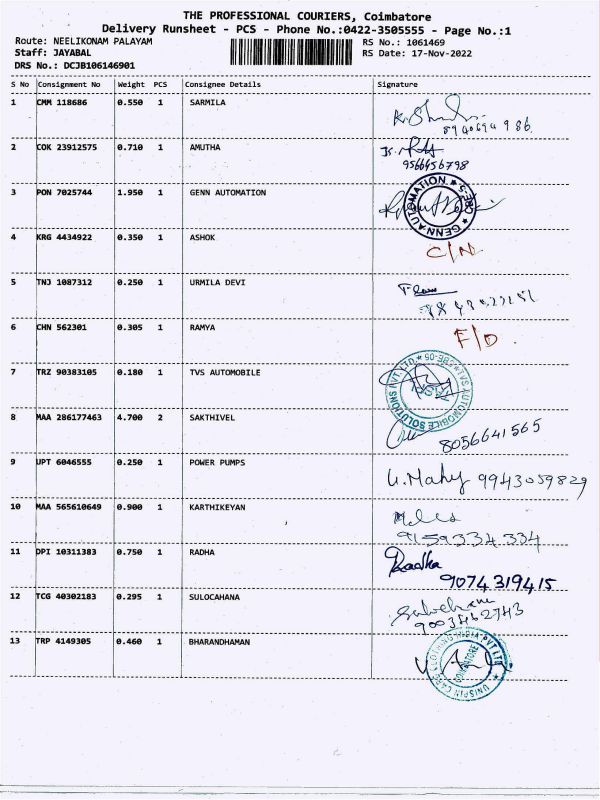 THE PROFESSIONAL COURIERS, Coimbatore
Delivery Runsheet - PCS - Phone No.:0422-3505555 - Page No.:1
Route: NEELIKONAM PALAYAM RS No.: 1061469
Staff: JAYABAL RS Date: 17-Nov-2022
DRS No.: DCJB106146901
S No Consignment No Weight PCS Consignee Details Signature
1 CMM 118686 0.550 1 SARMILA
8940694986
2 COK 23912575 0.710 1 AMUTHA
9566456798
3 PON 7025744 1.950 1 GENN AUTOMATION
GENN AUTOMATION ★ CBE-5 ★
4 KRG 4434922 0.350 1 ASHOK
C/N
5 TNJ 1087312 0.250 1 URMILA DEVI
6 CHN 562301 0.305 1 RAMYA
F/D
7 TRZ 90383105 0.180 1 TVS AUTOMOBILE
TVS AUTOMOBILE SOLUTIONS PVT. LTD. ★ CBE-05 ★
8 MAA 286177463 4.700 2 SAKTHIVEL
8056641565
9 UPT 6046555 0.250 1 POWER PUMPS
U. Mahy 9943059829
10 MAA 565610649 0.900 1 KARTHIKEYAN
9159334334
11 DPI 10311383 0.750 1 RADHA
Radha
9074319415
12 TCG 40302183 0.295 1 SULOCAHANA
9003462743
13 TRP 4149305 0.460 1 BHARANDHAMAN
UNISPIN CARE CLOTHING INDIA PVT LTD
COIMBATORE